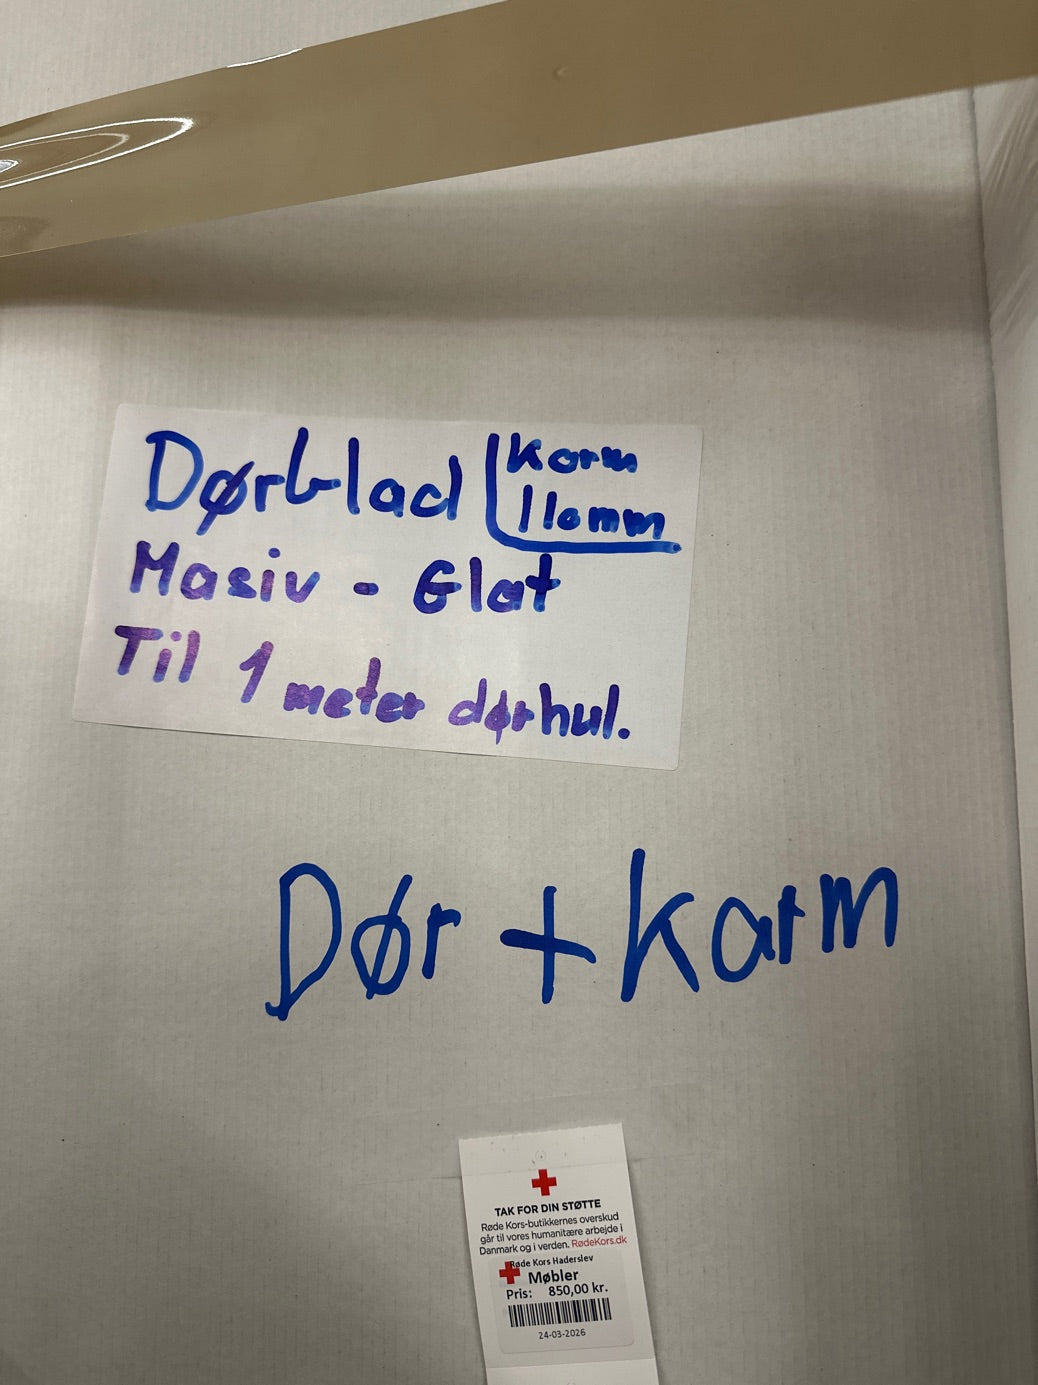 Dørblad Karm
110mm
Masiv - Glat
Til 1 meter dørhul.
Dør + Karm
TAK FOR DIN STØTTE
Røde Kors-butikkernes overskud
går til vores humanitære arbejde i
Danmark og i verden. RødeKors.dk
Røde Kors Haderslev
Møbler
Pris: 850,00 kr.
24-03-2026